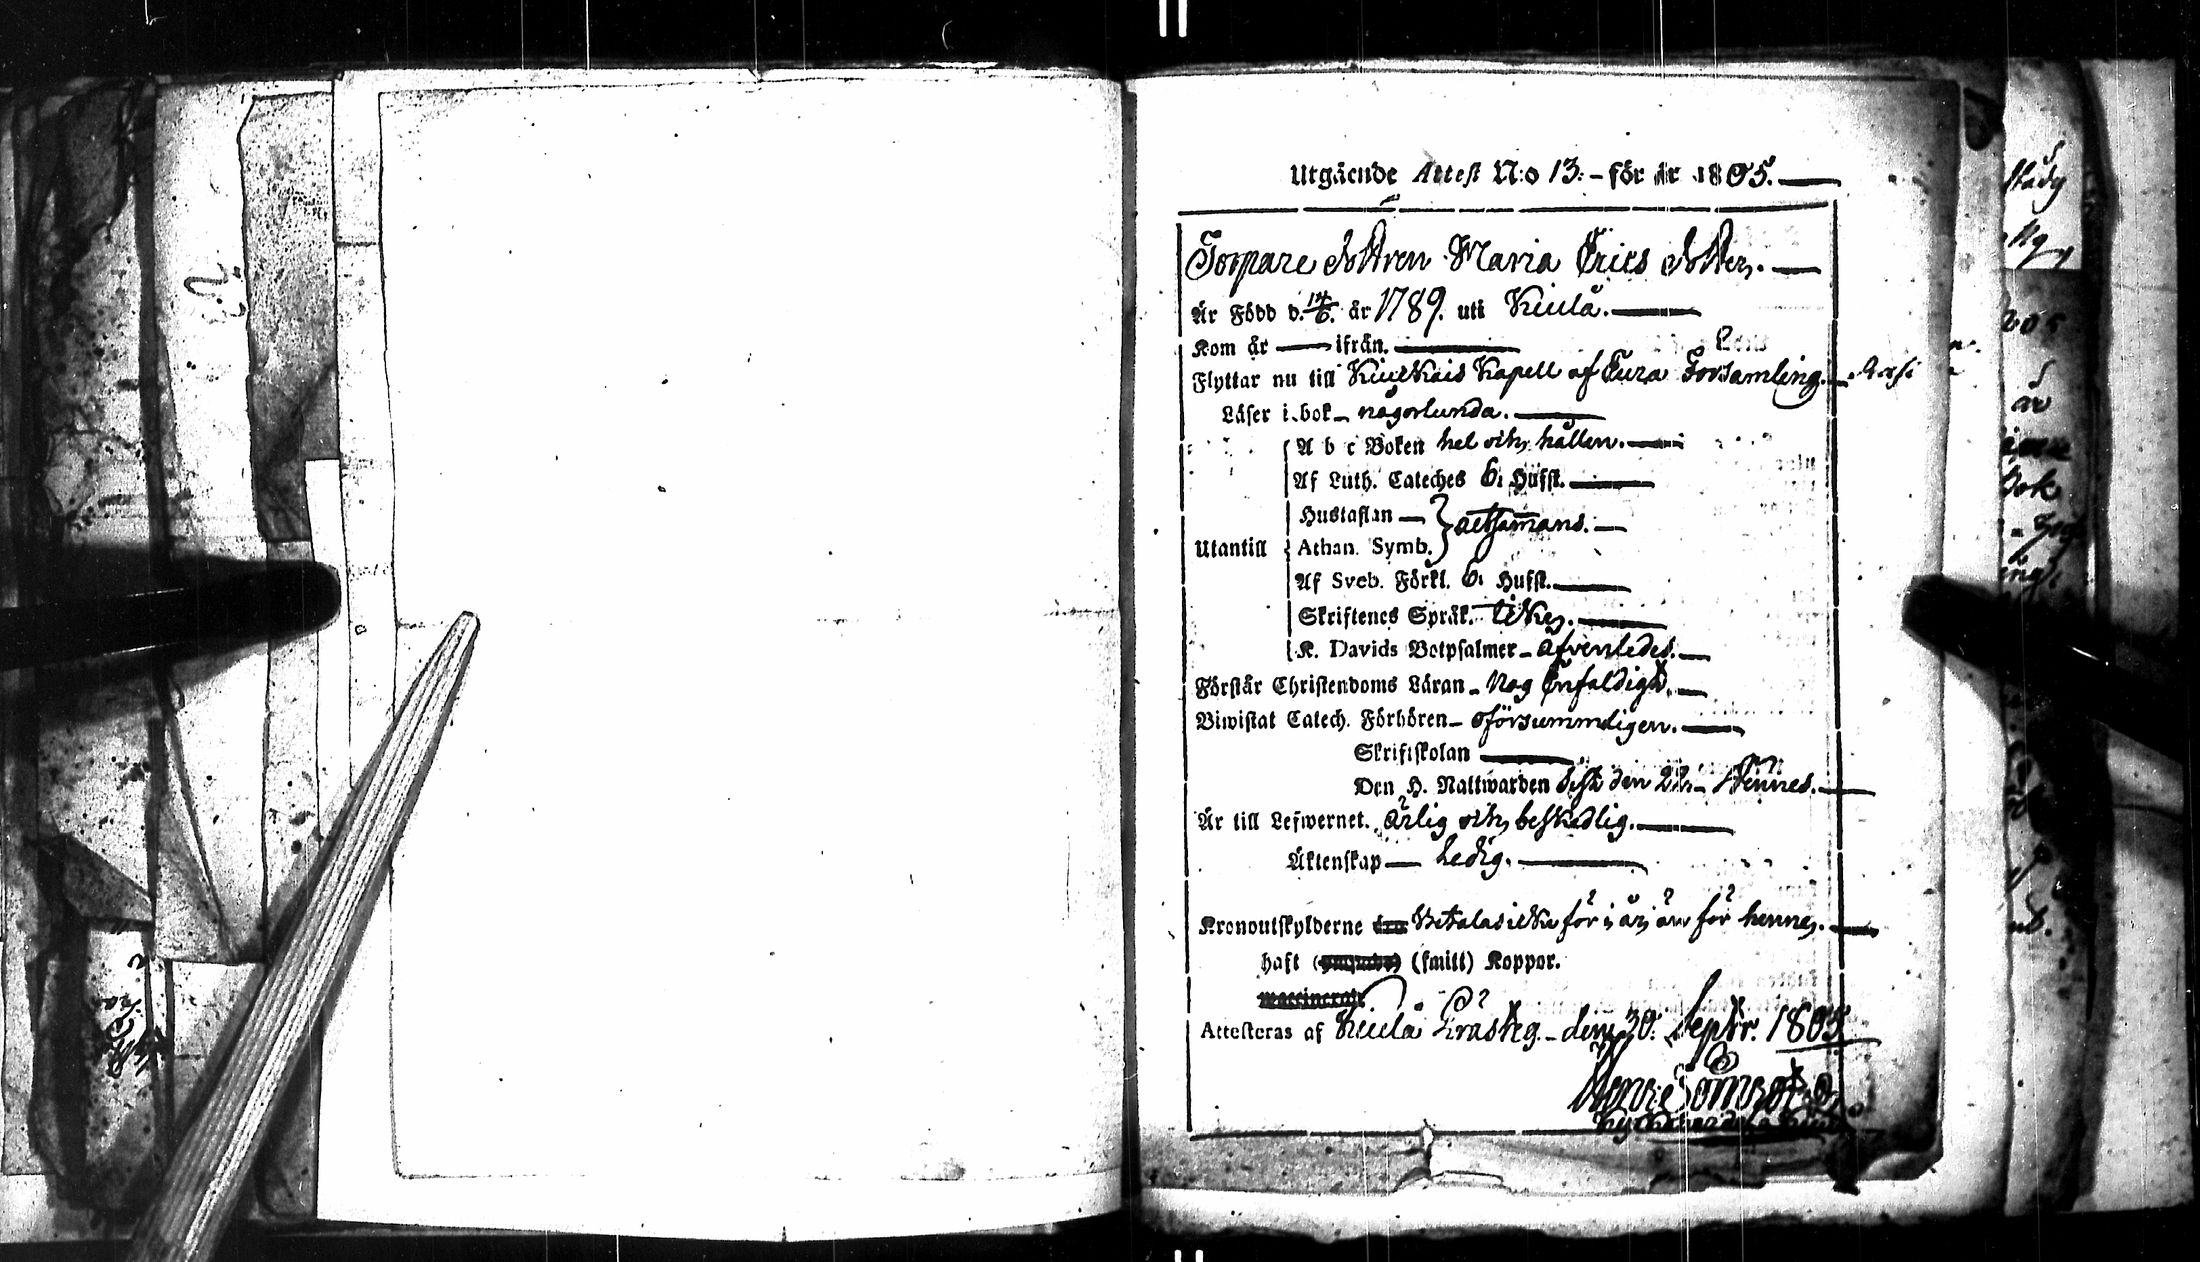 Utgående Attest N:o 13. - för år 1805.
Torpare dottren Maria Erics dotter.
Är Född d. 14/6. år 1789. uti Kiulå.
Kom år — ifrån.
Flyttar nu till Kiukais Kapell af Eura Forsamling.
Läser i bok - någorlunda.
A b c Boken hel och hållen.
Af Luth. Cateches 6. Hufst.
Hustaflan —
Athan. Symb. } altsam̄ans.
Utantill
Af Sveb. Förkl. 6. Hufst.
Skriftenes Språk.
K. Davids Botpsalmer - äfvenledes.
Förstår Christendoms Läran - nog Enfaldigt.
Biwistat Catech. Förhören - oförsummeligen.
Skriftskolan
Den H. Nattwarden sist den 22.
Är till Lefwernet. ärlig och beskedlig.
Äktenskap — Ledig.
Kronoutskylderne Betalas icke för i år, för henne.
haft (smitt) Koppor.
waccinerad
Attesteras af Kiulå Prästeg. - den 30. Septr. 1805.